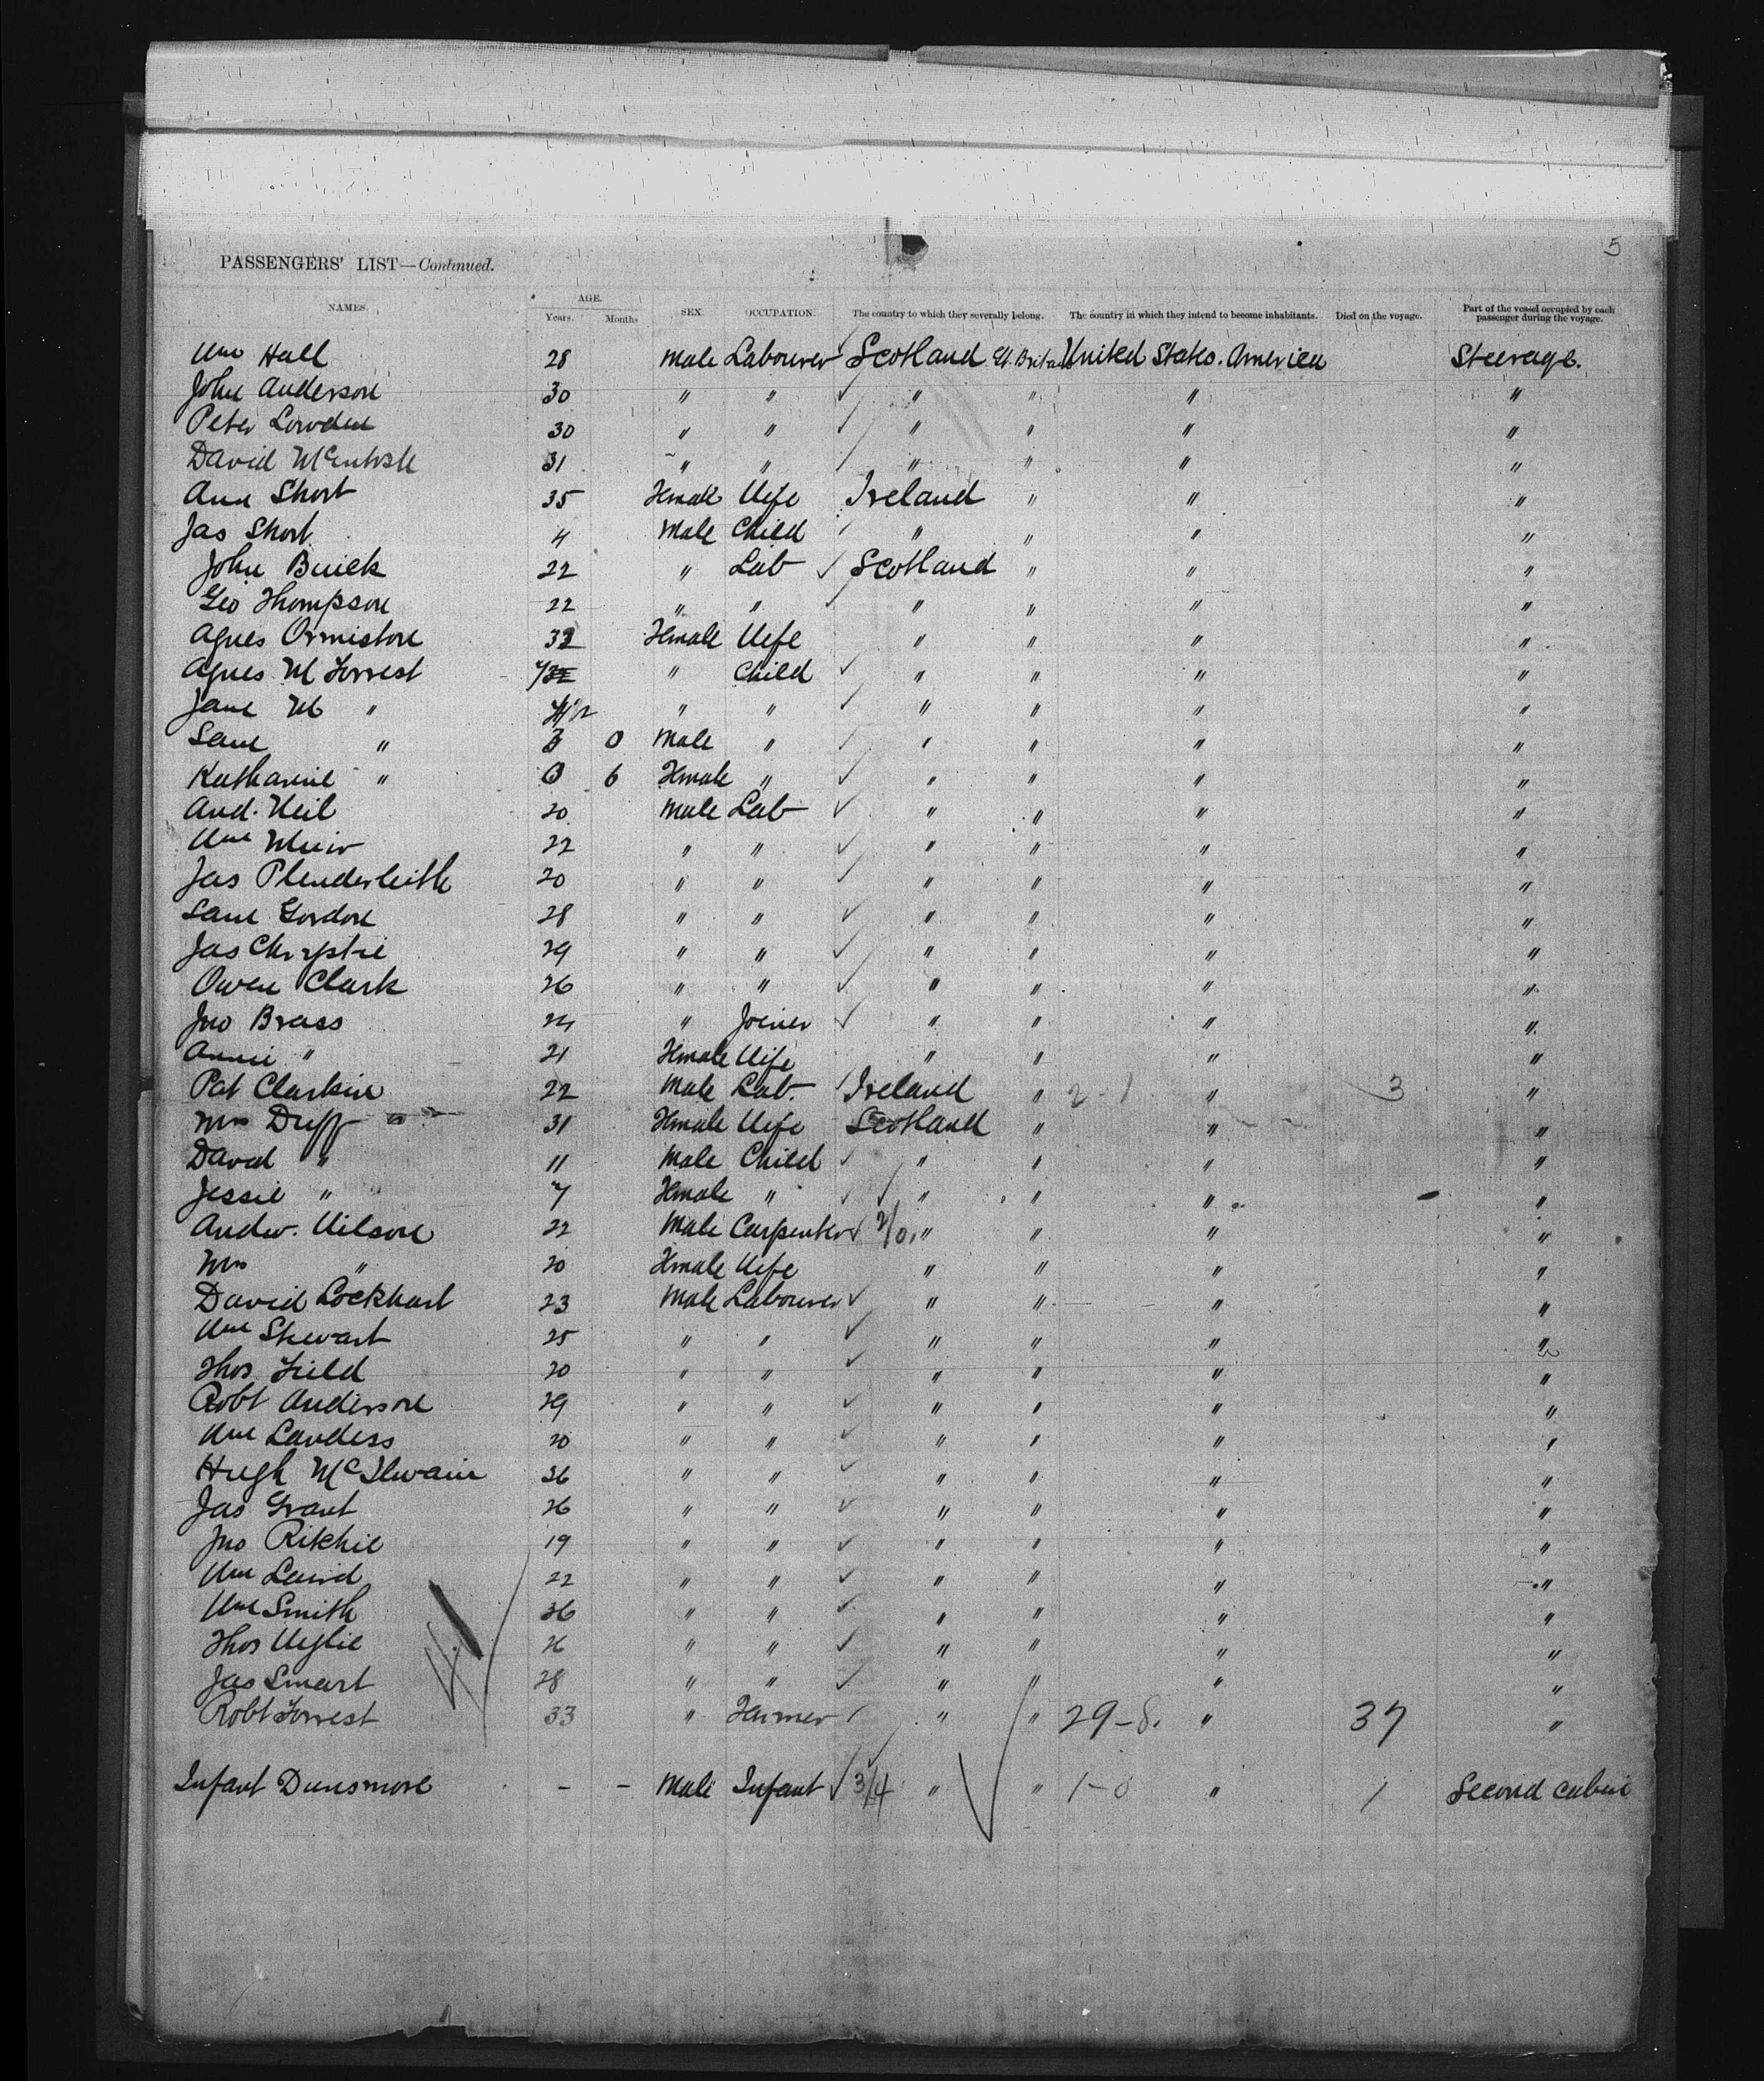 5
PASSENGERS' LIST—Continued.
NAMES. AGE. Years. Months SEX. OCCUPATION. The country to which they severally belong. The country in which they intend to become inhabitants. Died on the voyage. Part of the vessel occupied by each passenger during the voyage.
Wm Hall 28 Male Labourer Scotland Gt. Britain United States. America Steerage.
John Anderson 30 " " " " " "
Peter Lowden 30 " " " " " "
David McIntosh 31 " " " " " "
Ann Short 35 Female Wife Ireland " " "
Jas Short 4 Male Child " " " "
John Buick 22 " Lab Scotland " " "
Geo Thompson 22 " " " " " "
Agnes Ormiston 32 Female Wife " " " "
Agnes M Forrest " Child " " " "
Jane M " " " " " " "
Sam " 3 0 Male " " " " "
Katharine " 0 6 Female " " " " "
And. Neil 20 Male Lab " " " "
Wm Muir 22 " " " " " "
Jas Plenderleith 20 " " " " " "
Sam Gordon 28 " " " " " "
Jas Chrystie 29 " " " " " "
Owen Clark 26 " " " " " "
Jno Brass 24 " Joiner " " " "
Annie " 21 Female Wife " " " "
Pat Clarkin 22 Male Lab. Ireland " 2-1 " 3 "
Mrs Duff 31 Female Wife Scotland " " "
David " 11 Male Child " " " "
Jessie " 7 Female " " " " "
Andw. Wilson 22 Male Carpenter 2/0. " " " "
Mrs " 20 Female Wife " " " "
David Lockhart 23 Male Labourer " " " "
Wm Stewart 25 " " " " " "
Thos Field 20 " " " " " "
Robt Anderson 29 " " " " " "
Wm Landess 20 " " " " " "
Hugh McIlwain 36 " " " " " "
Jas Grant 26 " " " " " "
Jno Ritchie 19 " " " " " "
Wm Laird 22 " " " " " "
Wm Smith 36 " " " " " "
Thos Wylie 26 " " " " " "
Jas Smart 28 " " " " " "
Robt Forrest 33 " Farmer " " 29-8. " 37 "
Infant Dunsmore - - Male Infant 3/4 " " 1-0 " 1 Second cabin